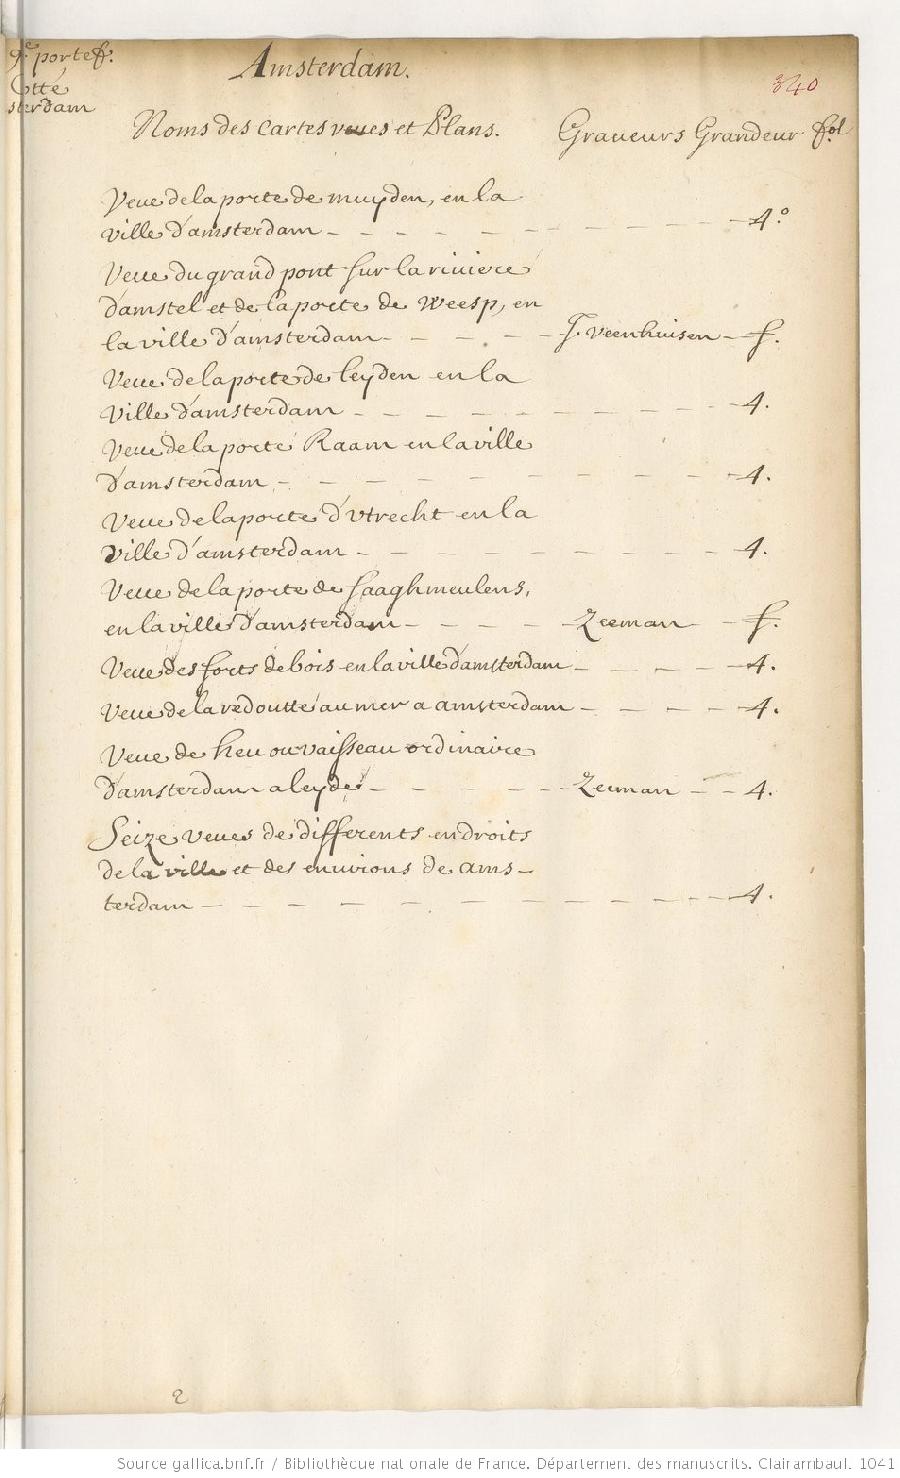 9.e portef.
Cotté
sterdam
Amsterdam.
340
Noms des Cartes veues et Plans. Graueurs Grandeur fol.
Veue de la porte de muyden, en la
ville d'amsterdam - - - - 4.°
Veue du grand pont sur la riuiere
d'amstel et de la porte de Weesp, en
la ville d'amsterdam - - - - J. Veenhuisen - f.
Veue de la porte de leyden en la
ville d'amsterdam - - - - 4.
Veue de la porte Raam en la ville
d'amsterdam - - - - 4.
Veue de la porte d'vtrecht en la
ville d'amsterdam - - - - 4.
Veue de la porte de saaghmeulens,
en la ville d'amsterdam - - - - Zeeman - f.
Veue des forts de bois en la ville d'amsterdam - - - - 4.
Veue de la redoutte au mer a amsterdam - - - - 4.
Veue de heu ou vaisseau ordinaire
d'amsterdam a leyde - - - - Zeeman - - 4.
Seize veues de differents endroits
de la ville et des enuirons de ams-
terdam - - - - 4.
2
Source gallica.bnf.fr / Bibliothèque nationale de France. Département des manuscrits. Clairambault 1041